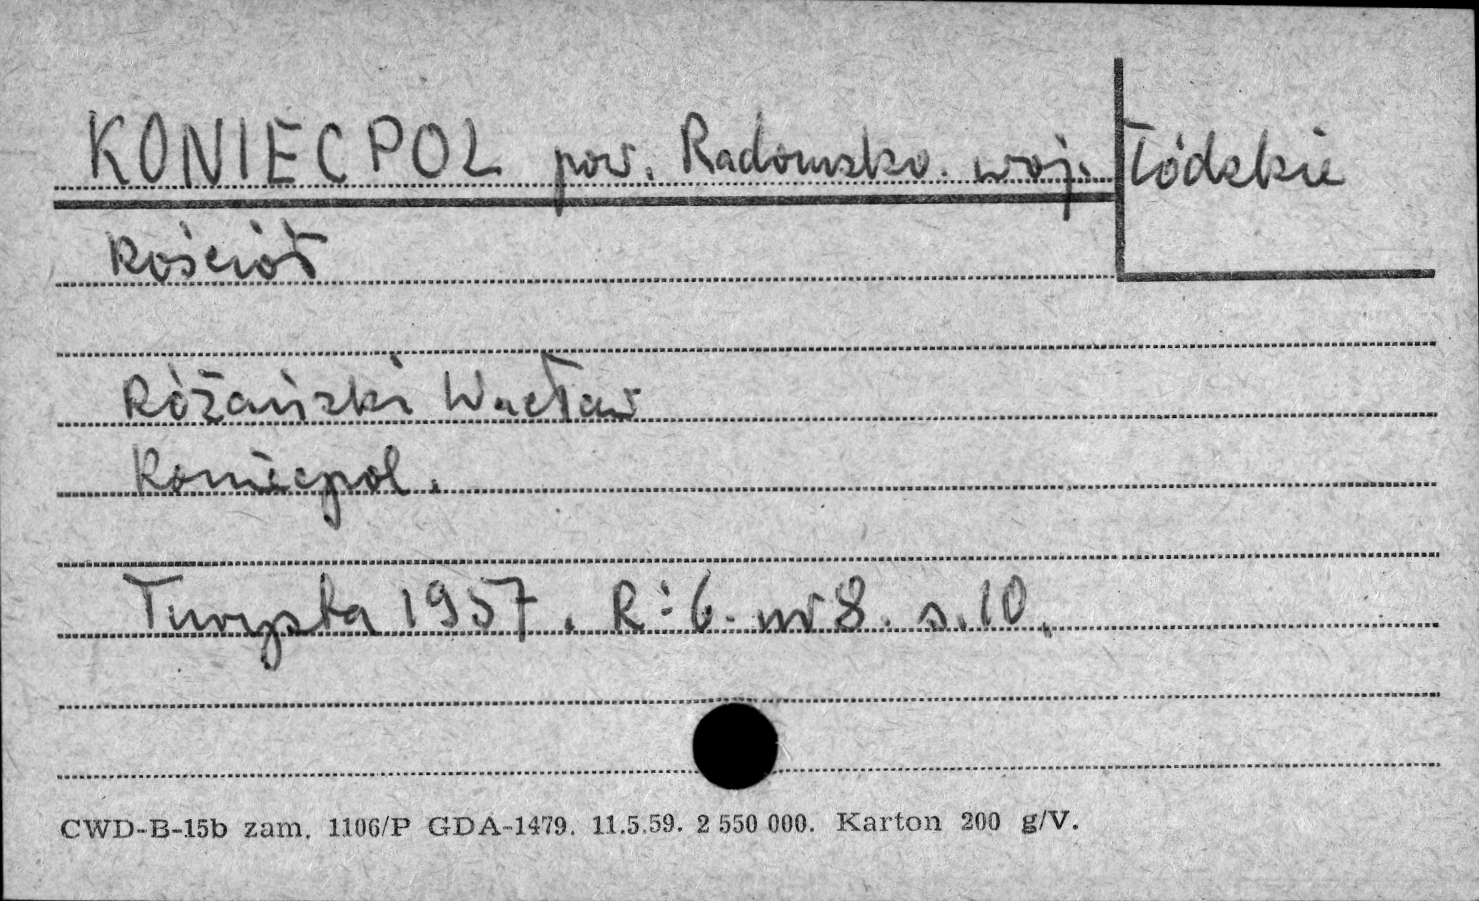 KONIECPOL pow. Radomsko. woj. Łódzkie
Kościół
Różański Wacław
Koniecpol.
Turysta 1957. R: 6. nr 8. s. 10.
CWD-B-15b zam. 1106/P GDA-1479. 11.5.59. 2 550 000. Karton 200 g/V.